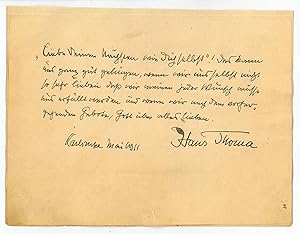 „Liebe Deinen Nächsten wie Dich selbst“! Das kann
uns ganz gut gelingen, wenn wir uns selbst nicht
so sehr lieben daß wir meinen jeder Wunsch müsse
uns erfüllt werden und wenn wir nach dem vorher-
gehenden Gebote, Gott über alles lieben.
Karlsruhe Mai 1911
Hans Thoma